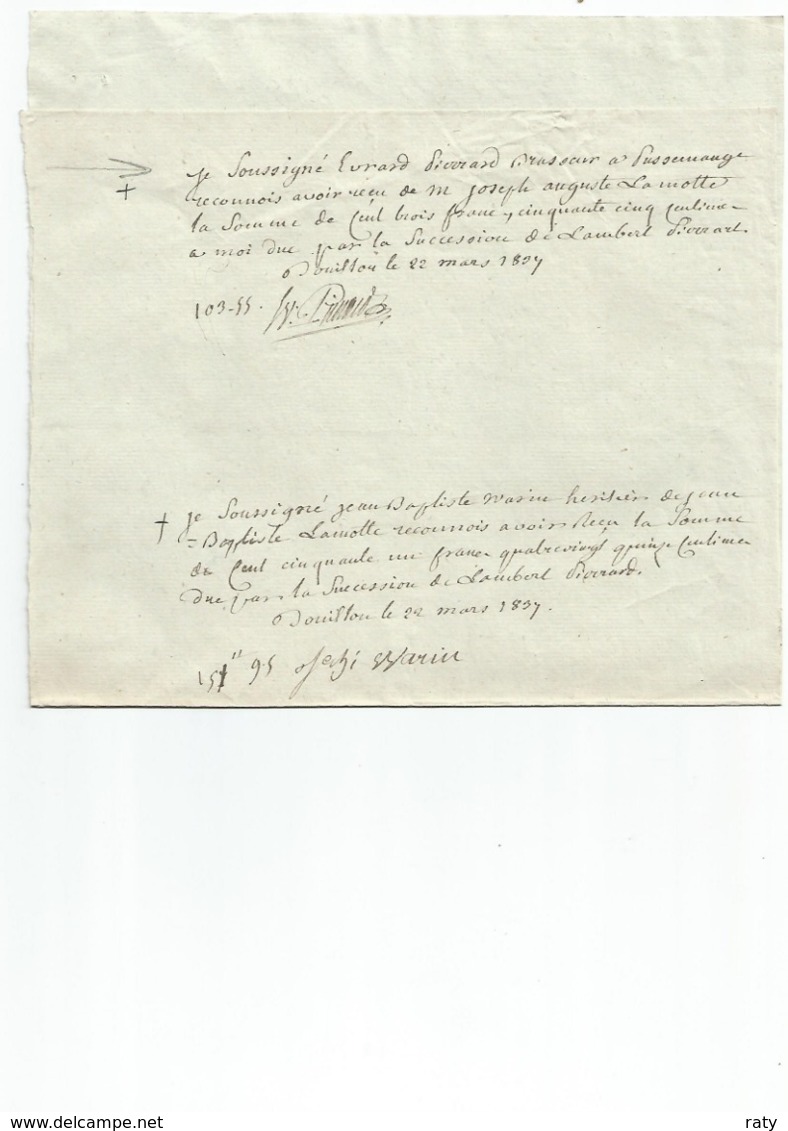 Je Soussigné Evrard Pierrard Brasseur a Pussemange
reconnois avoir recu de m joseph auguste Lamotte
la Somme de Cent trois franc, cinquante cinq Centimes
a moi due par la Succession de Lambert Pierrart
Bouillon le 22 mars 1837
103-55. Pierrard
Je Soussigné jean Baptiste Warin heritier de jean
= Baptiste Lamotte reconnois avoir Recu la Somme
de Cent cinquante un franc quatrevingt quinze Centimes
due par la Succession de Lambert Pierrard.
Bouillon le 22 mars 1837.
151 " 95 Warin
www.delcampe.net
raty